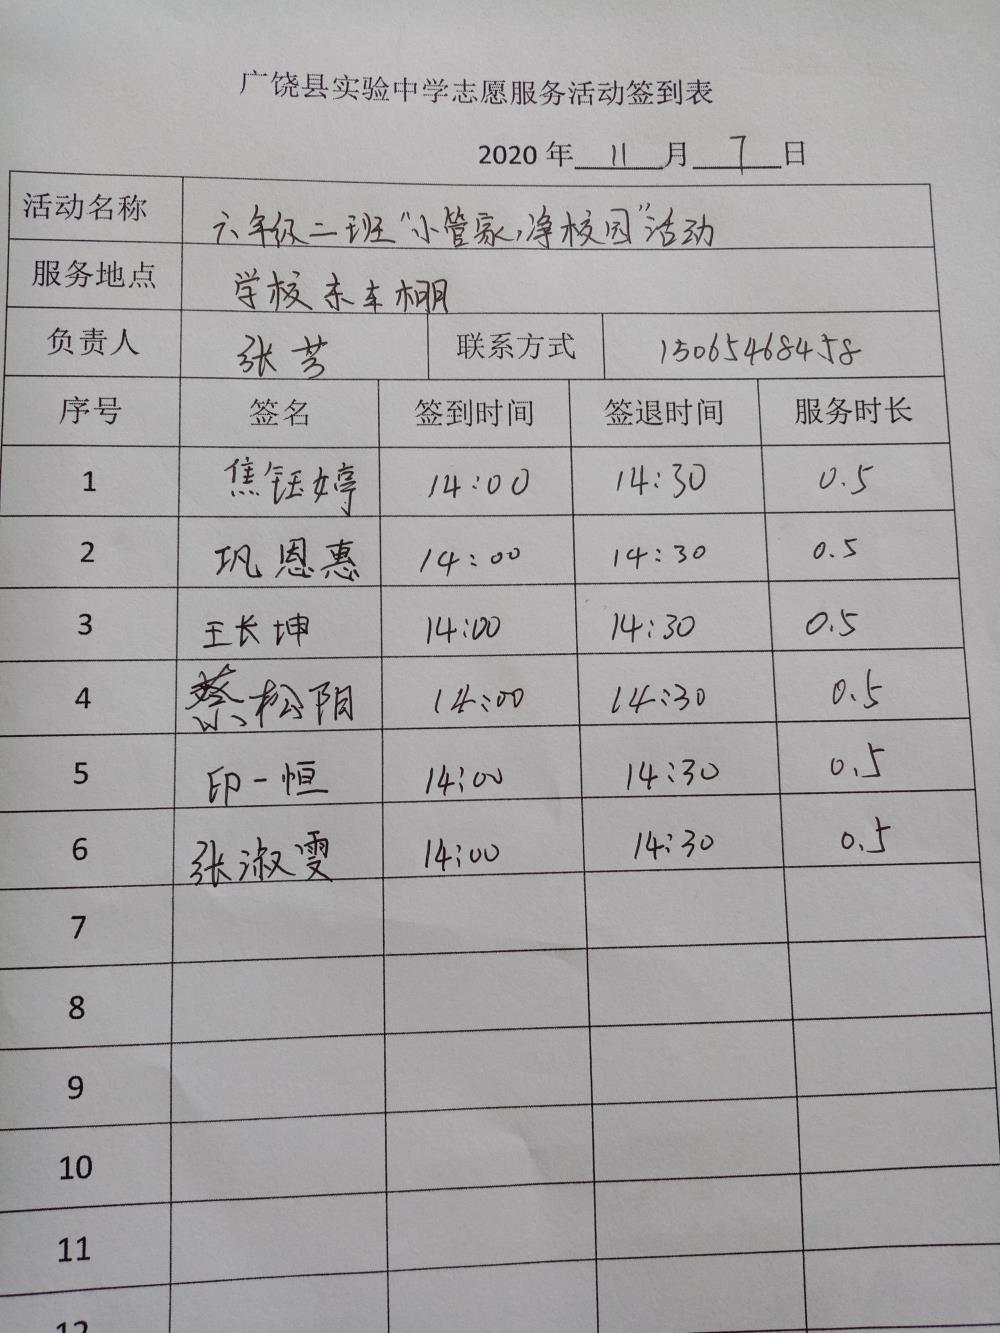 广饶县实验中学志愿服务活动签到表
2020 年 11 月 7 日
活动名称 六年级二班“小管家,净校园”活动
服务地点 学校东车棚
负责人 张芳 联系方式 15065468458
序号 签名 签到时间 签退时间 服务时长
1 焦钰婷 14:00 14:30 0.5
2 巩恩惠 14:00 14:30 0.5
3 王长坤 14:00 14:30 0.5
4 蔡松阳 14:00 14:30 0.5
5 印一恒 14:00 14:30 0.5
6 张淑雯 14:00 14:30 0.5
7
8
9
10
11
12